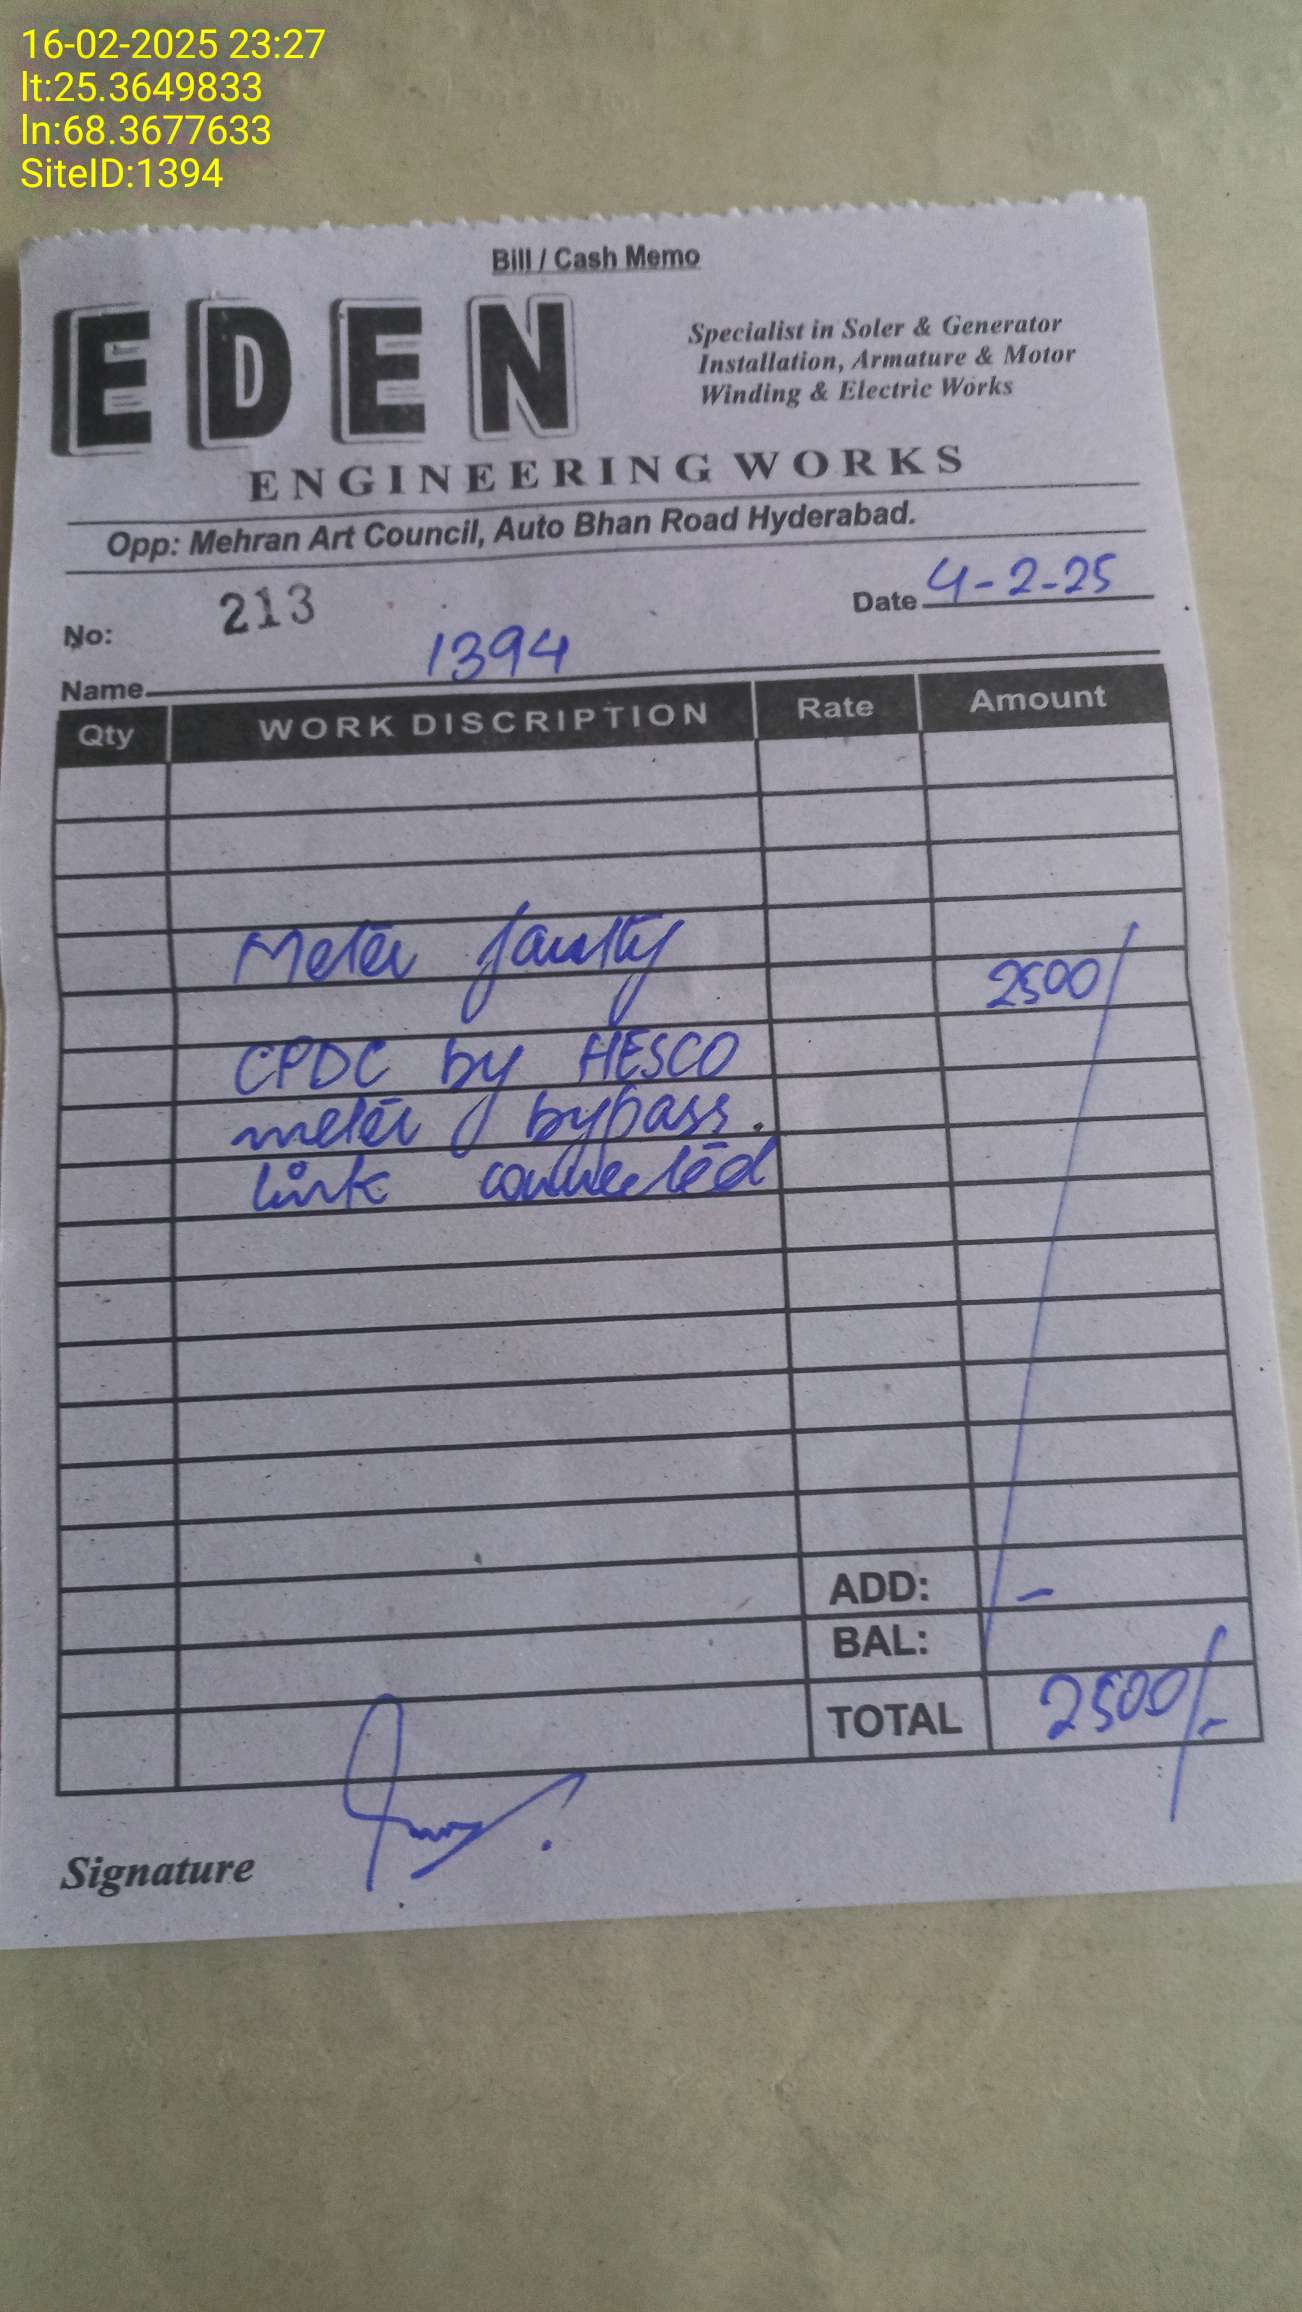 16-02-2025 23:27
lt:25.3649833
ln:68.3677633
SiteID:1394
Bill / Cash Memo
EDEN
Specialist in Soler & Generator
Installation, Armature & Motor
Winding & Electric Works
ENGINEERING WORKS
Opp: Mehran Art Council, Auto Bhan Road Hyderabad.
No: 213
Date 4-2-25
Name 1394
Qty WORK DISCRIPTION Rate Amount
Meter faulty
2500/
CPDC by HESCO
meter bypass.
link connected
ADD: -
BAL:
TOTAL 2500/-
Signature